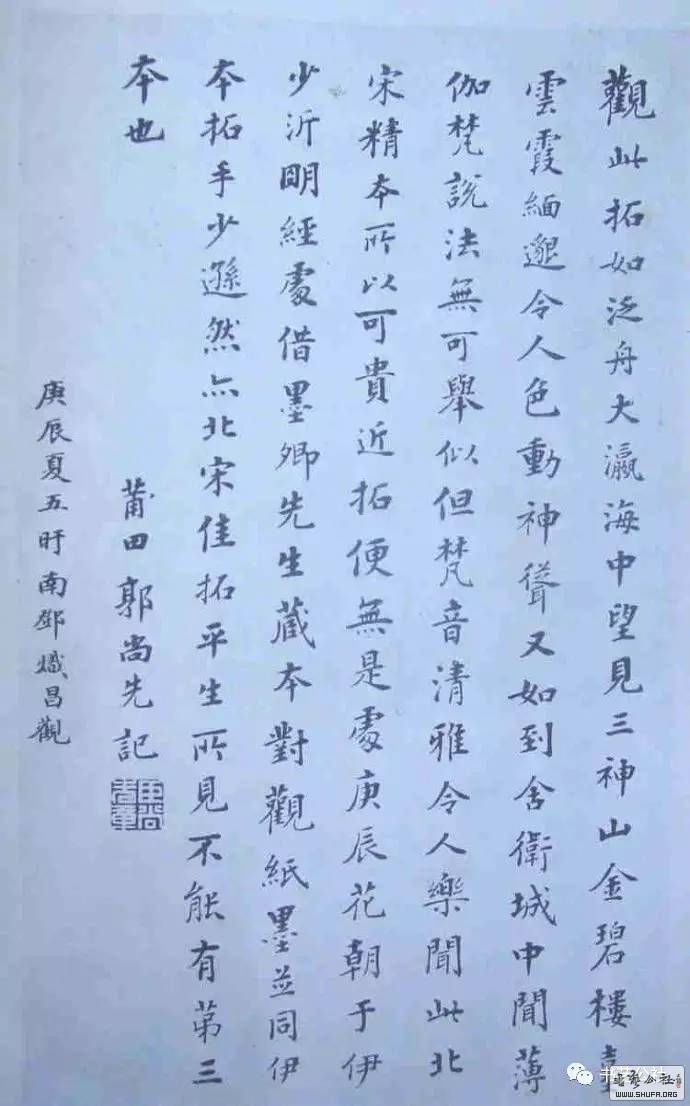 觀此拓如泛舟大瀛海中望見三神山金碧樓臺
雲霞緬邈令人色動神聳又如到舍衛城中聞薄
伽梵說法無可舉似但梵音清雅令人樂聞此北
宋精本所以可貴近拓便無是處庚辰花朝于伊
少沂明經處借墨卿先生藏本對觀紙墨並同伊
本拓手少遜然亦北宋佳拓平生所見不能有第三
本也
莆田郭尚先記
庚辰夏五盱南鄧熾昌觀
WWW.SHUFA.ORG